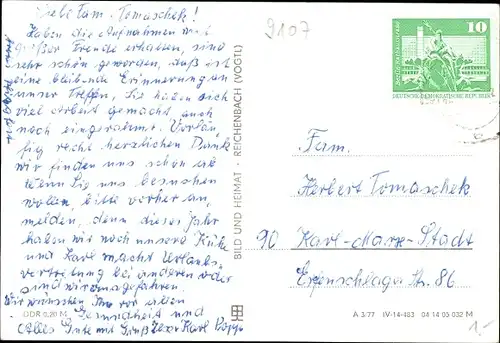 Liebe Fam. Tomaschek!
Haben die Aufnahmen mit
großer Freude erhalten, sind
sehr schön geworden, daß ist
eine bleibende Erinnerung an
unser Treffen, Sie haben sich
viel Arbeit gemacht auch
noch eingerahmt. Vorläu,
fig recht herzlichen Dank
wir finden uns schon ab
Wenn Sie uns besuchen
wollen, bitte vorher an,
melden, denn dieses Jahr
haben wir noch unsere Kühe
und Karl macht Urlaubs,
vertretung bei anderen oder
sind wir ausgefahren.
Wir wünschen Ihn vor allen
Gesundheit und
Alles Gute mit Gruß Karl Popp
9107
10
DEUTSCHE DEMOKRATISCHE REPUBLIK
BILD UND HEIMAT · REICHENBACH (VOGTL)
Fam.
Herbert Tomaschek
90 Karl-Marx-Stadt
Erfenschlager Str. 86
DDR 0,20 M
A 3/77 IV-14-483 04 14 05 032 M
1,-